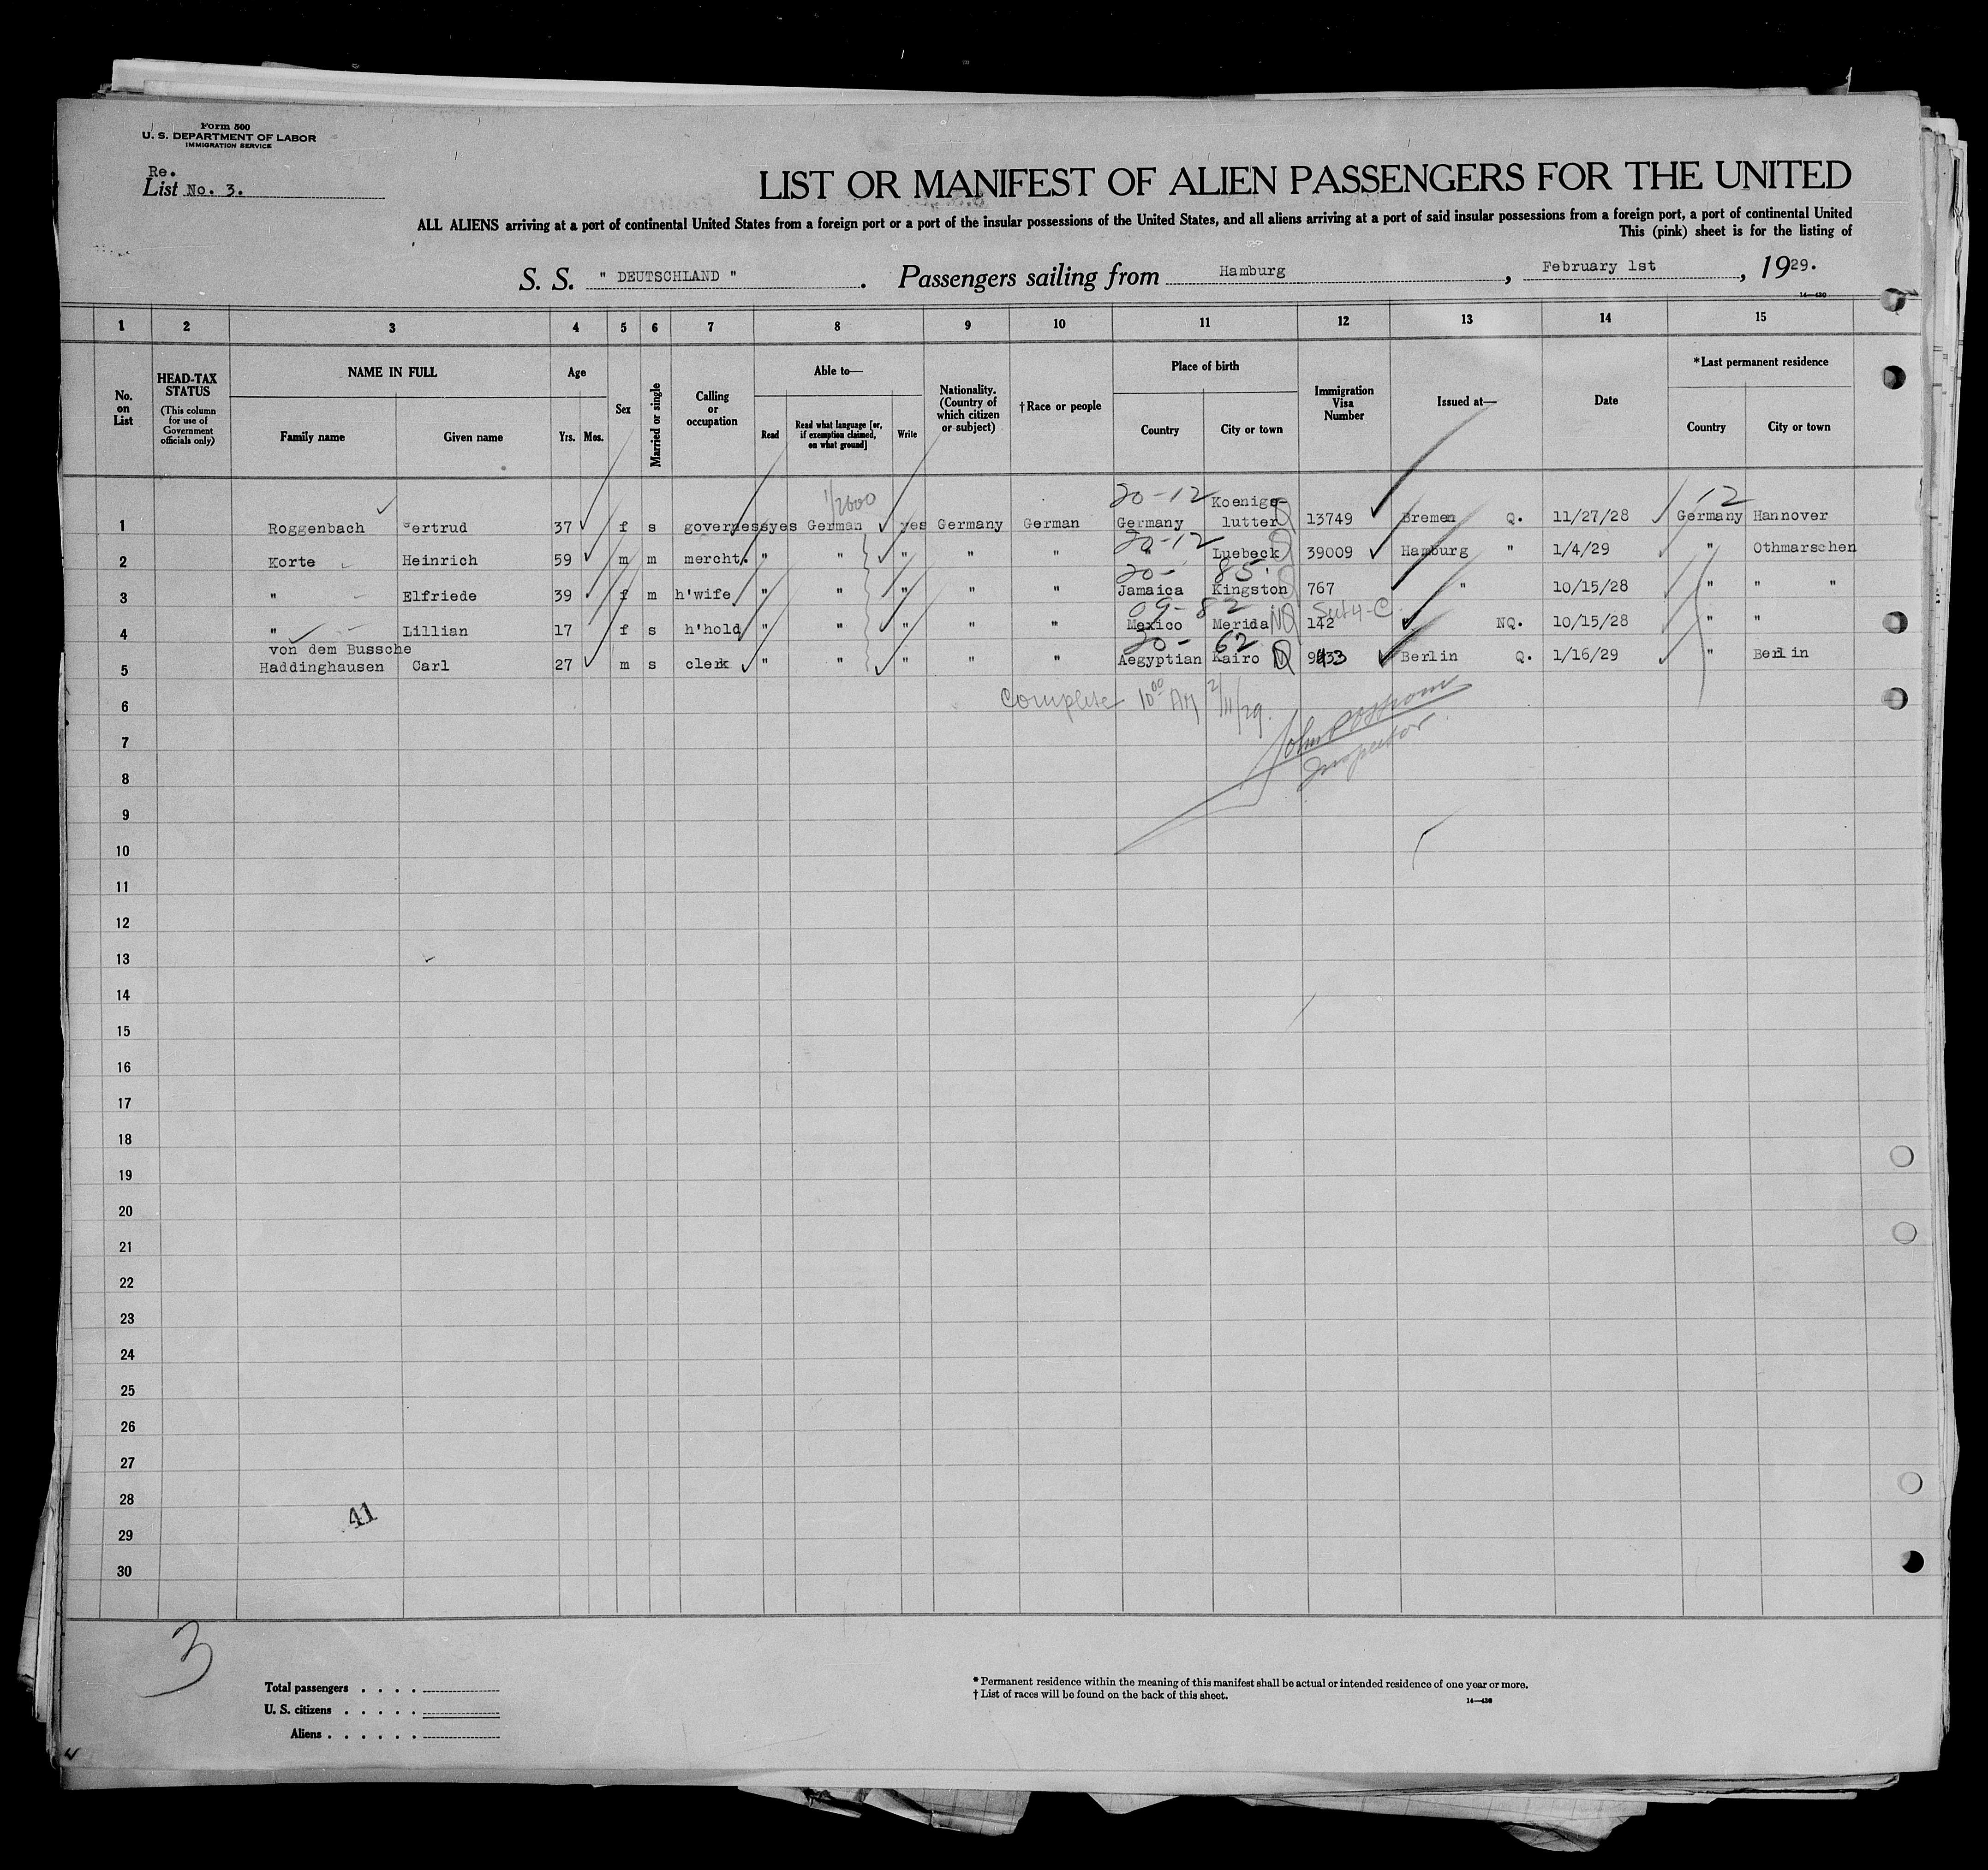 Form 500
U. S. DEPARTMENT OF LABOR
IMMIGRATION SERVICE
Re.
List No. 3.
LIST OR MANIFEST OF ALIEN PASSENGERS FOR THE UNITED
ALL ALIENS arriving at a port of continental United States from a foreign port or a port of the insular possessions of the United States, and all aliens arriving at a port of said insular possessions from a foreign port, a port of continental United
This (pink) sheet is for the listing of
S. S. " DEUTSCHLAND " . Passengers sailing from Hamburg , February 1st , 1929.
14—430
1 2 3 4 5 6 7 8 9 10 11 12 13 14 15
No. on List
HEAD-TAX STATUS
(This column for use of Government officials only)
NAME IN FULL
Family name Given name
Age
Yrs. Mos.
Sex
Married or single
Calling or occupation
Able to—
Read
Read what language [or, if exemption claimed, on what ground]
Write
Nationality. (Country of which citizen or subject)
† Race or people
Place of birth
Country City or town
Immigration Visa Number
Issued at—
Date
* Last permanent residence
Country City or town
1/2600
20-12 Koenigs- 12
1 Roggenbach Gertrud 37 f s governess yes German yes Germany German Germany lutter Q 13749 Bremen Q. 11/27/28 Germany Hannover
20-12
2 Korte Heinrich 59 m m mercht. " " " " " " Luebeck Q 39009 Hamburg " 1/4/29 " Othmarschen
20- 85.
3 " Elfriede 39 f m h'wife " " " " " Jamaica Kingston Q 767 " 10/15/28 " " "
09-82 Sect 4-C.
4 " Lillian 17 f s h'hold " " " " " Mexico Merida NQ 142 NQ. 10/15/28 " "
von dem Bussche 20- 62
5 Haddinghausen Carl 27 m s clerk " " " " " Aegyptian Kairo Q 9433 Berlin Q. 1/16/29 " Berlin
6 Complete 10 00 AM 2/11/29.
7
Inspector.
8
9
10
11
12
13
14
15
16
17
18
19
20
21
22
23
24
25
26
27
28
41
29
30
3
Total passengers . . . .
U. S. citizens . . . . .
Aliens . . . . . .
* Permanent residence within the meaning of this manifest shall be actual or intended residence of one year or more.
† List of races will be found on the back of this sheet.
14—430